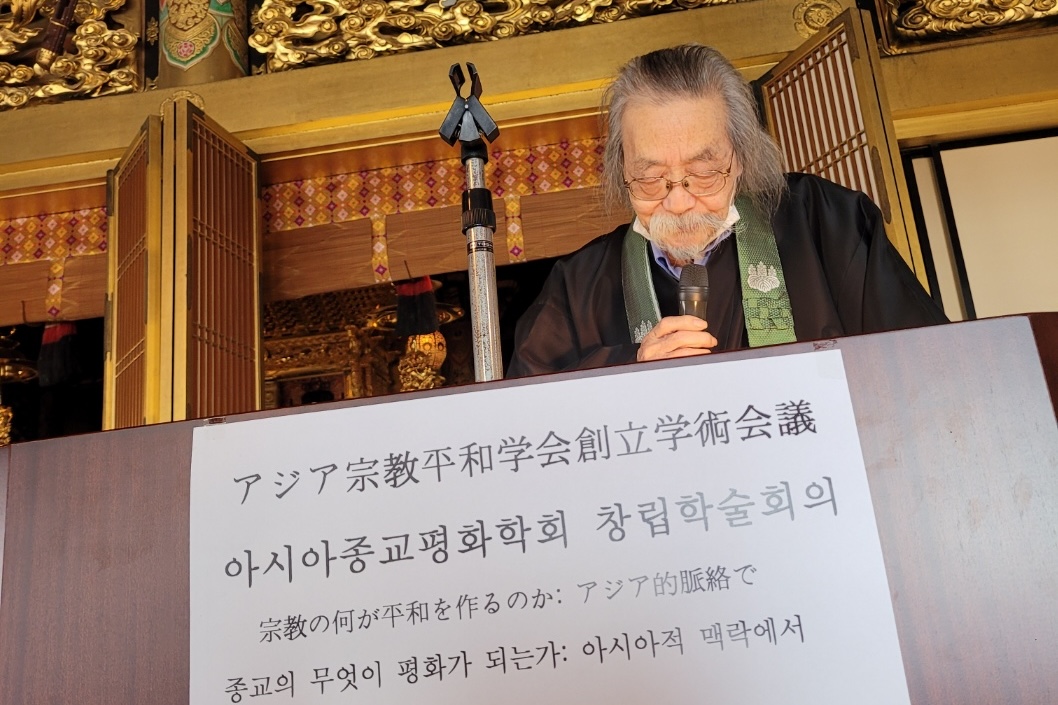 アジア宗教平和学会創立学術会議
아시아종교평화학회 창립학술회의
宗教の何が平和を作るのか: アジア的脈絡で
종교의 무엇이 평화가 되는가: 아시아적 맥락에서